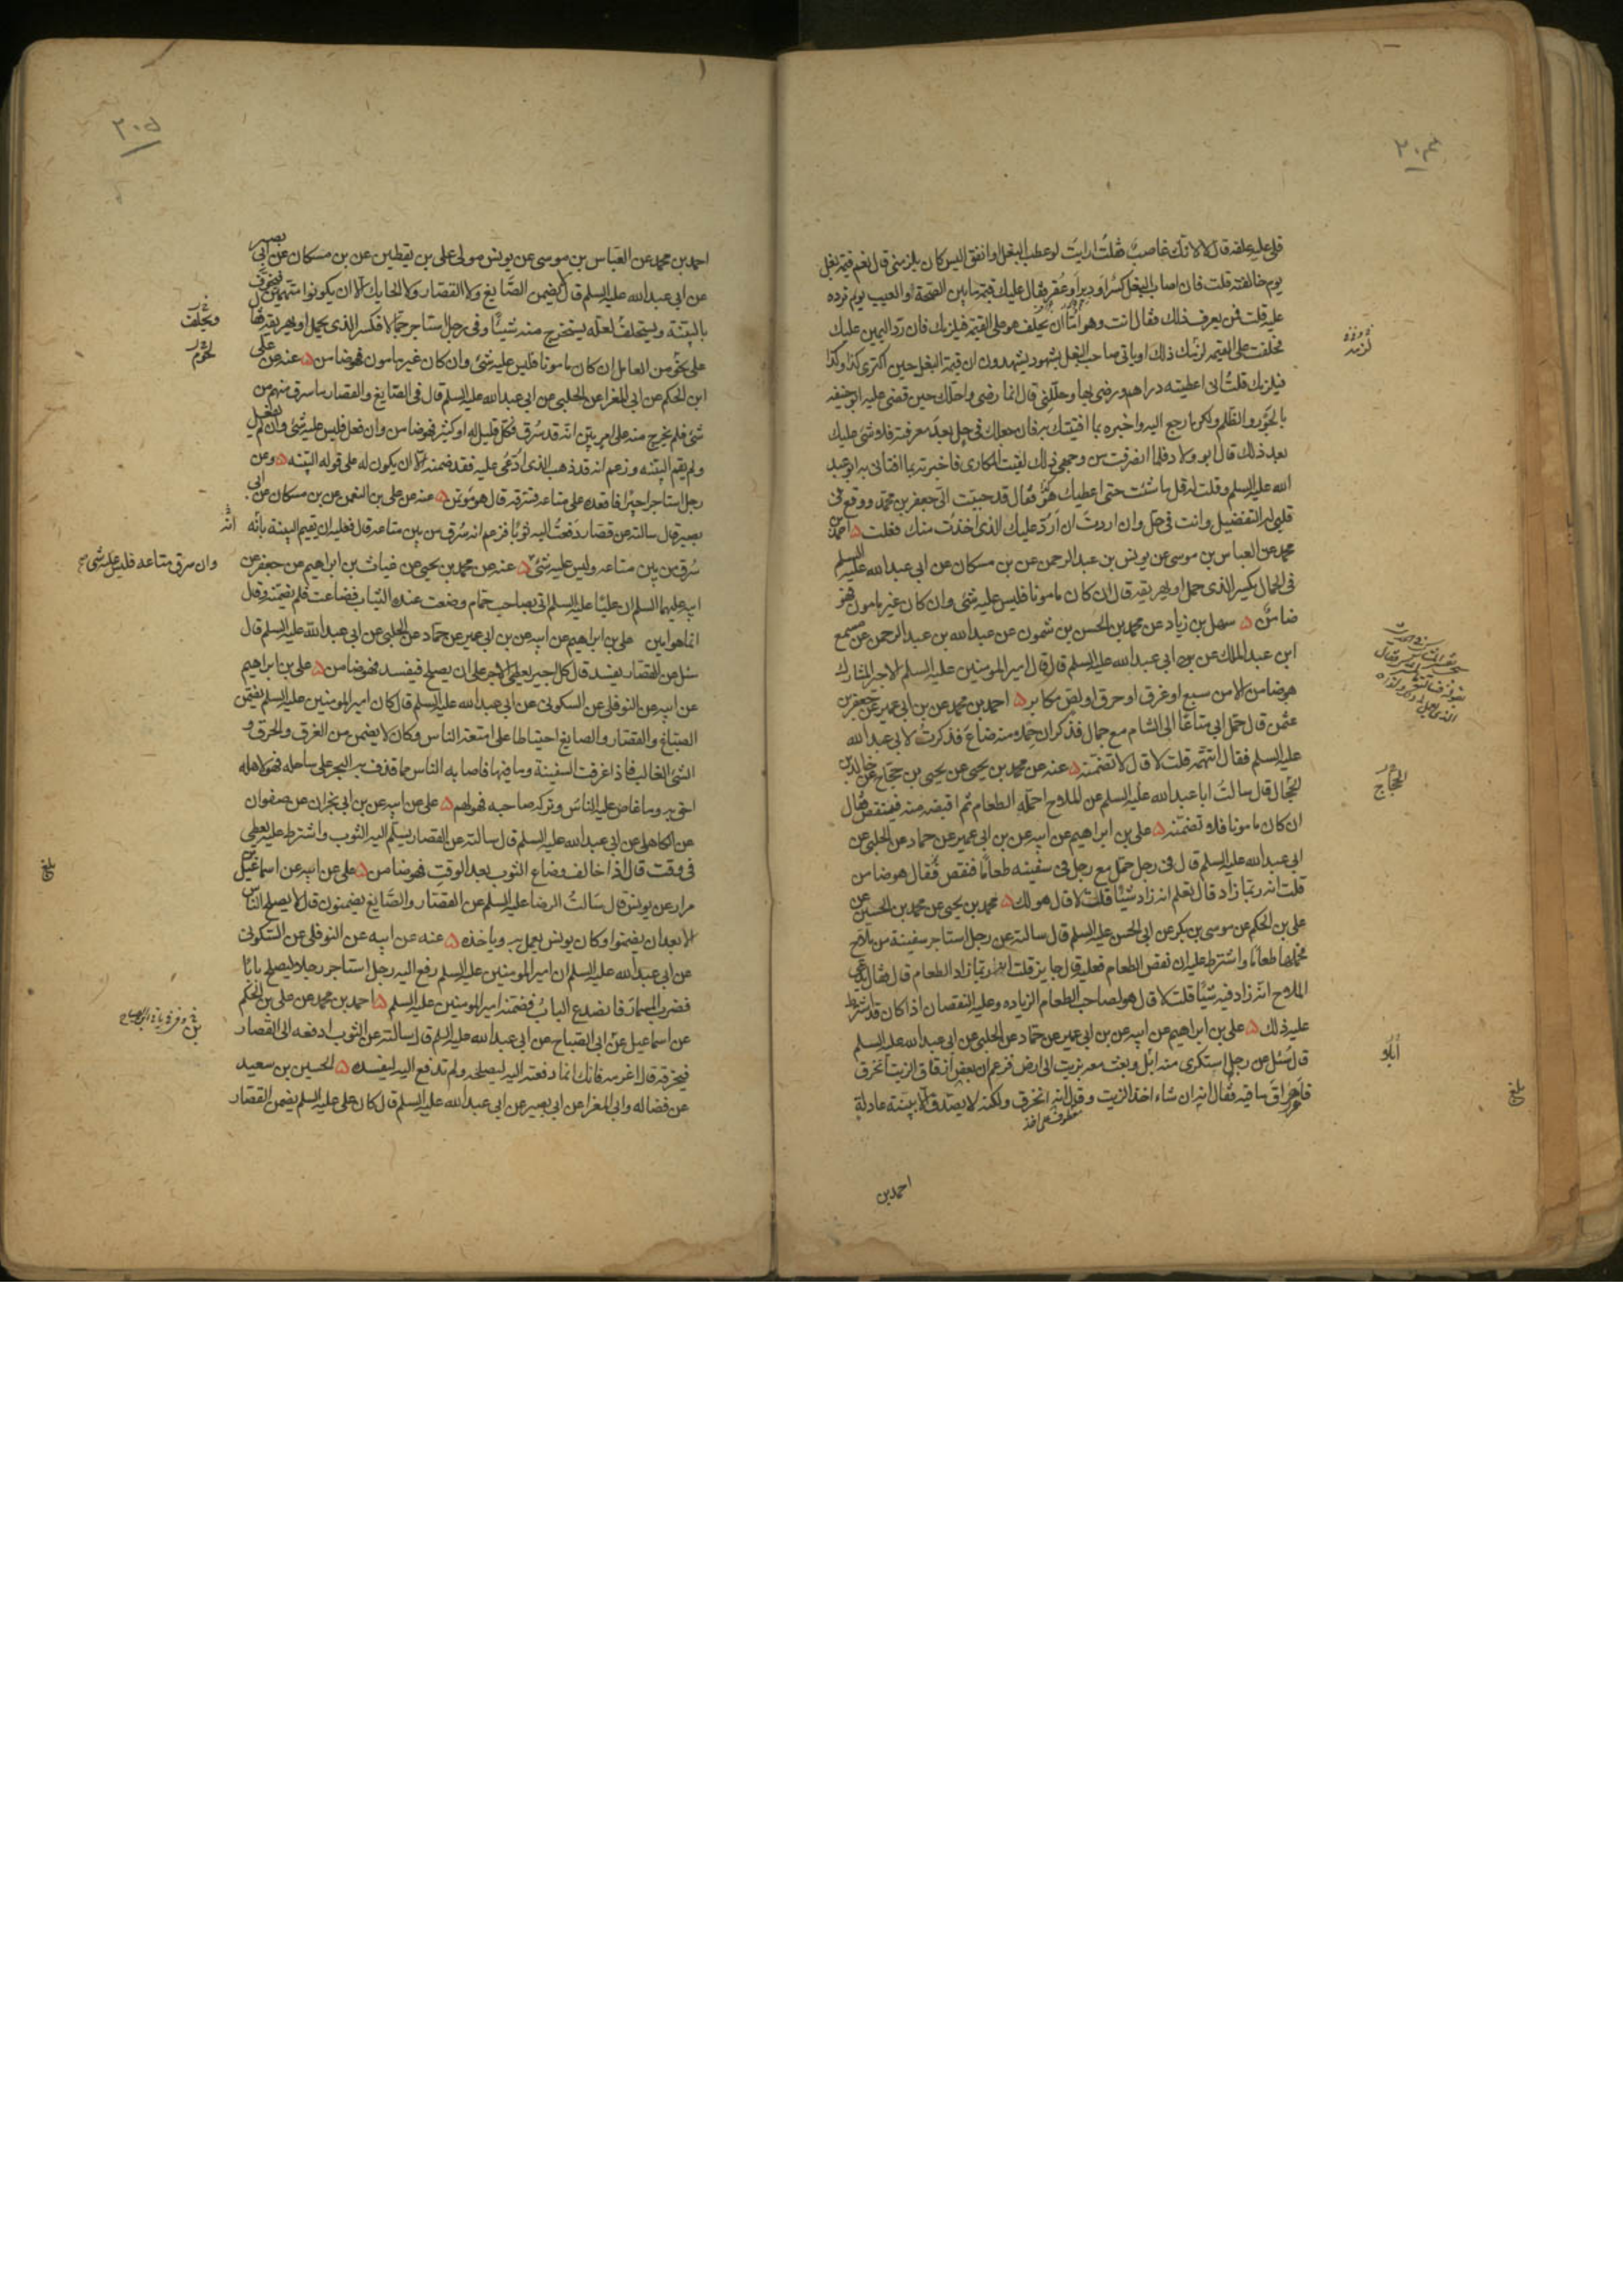 ٢٠٤
فلي عليه علفه قال لا لانك غاصب فقلت ارايت لو عطب البغل وانفق اليس كان يلزمني قال نعم قيمة بغل
يوم خالفته قلت فان اصاب البغل كسر او دبر او عقر فقال عليك قيمة ما بين الصحة والعيب يوم ترده
عليه قلت فمن يعرف ذلك فقال انت وهو اما ان يحلف هو على القيمة فيلزمك فان رد اليمين عليك
فحلفت على القيمة لزمك ذلك او ياتي صاحب البغل بشهود يشهدون ان قيمة البغل حين اكترى كذا وكذا
فيلزمك قلت اني اعطيته دراهم ورضي بها وحللني قال انما رضي واحلك حين قضى عليه ابو حنيفه
بالجور والظلم ولكن ارجع اليه واخبره بما افتيتك به فان جعلك في حل بعد معرفته فلا شيء عليك
بعد ذلك قال ابو ولاد فلما انصرفت من وجهي ذلك لقيت المكاري فاخبرته بما افتاني به ابو عبد
الله عليه السلم وقلت له قل ما شئت حتى اعطيكه فقال قد حببت الي جعفر بن محمد ووقع في
قلبي له التفضيل وانت في حل وان اردت ان ارد عليك الذي اخذت منك فعلت ۵ احمد بن
محمد عن العباس بن موسى عن يونس بن عبد الرحمن عن بن مسكان عن ابي عبد الله عليه السلم
في الجمال يكسر الذي حمل او يهريقه قال ان كان مامونا فليس عليه شيء وان كان غير مامون فهو
ضامن ۵ سهل بن زياد عن محمد بن الحسن بن شمون عن عبد الله بن عبد الرحمن عن مسمع
ابن عبد الملك عن ابي عبد الله عليه السلم قال قال امير المومنين عليه السلم الاجير المشارك
هو ضامن الا من سبع او غرق او حرق او لص مكابر ۵ احمد بن محمد عن بن ابي عمير عن جعفر بن
عثمن قال حمل ابي متاعا الى الشام مع جمال فذكر ان حمله منه ضاع فذكرت لابي عبد الله
عليه السلم فقال اتتهمه قلت لا قال لا تضمنه ۵ عنه عن محمد بن يحيى عن يحيى بن حجاج عن خالد بن
الحجال قال سالت ابا عبد الله عليه السلم عن الملاح احمله الطعام ثم اقبضه منه فينقص فقال
ان كان مامونا فلا تضمنه ۵ علي بن ابراهيم عن ابيه عن بن ابي عمير عن حماد عن الحلبي عن
ابي عبد الله عليه السلم قال في رجل حمل مع رجل في سفينه طعاما فنقص فقال هو ضامن
قلت انه ربما زاد قال تعلم انه زاد شيئا قلت لا قال هو لك ۵ محمد بن يحيى عن محمد بن الحسين عن
علي بن الحكم عن موسى بن بكر عن ابي الحسن عليه السلم قال سالته عن رجل استاجر سفينة من ملاح
فحملها طعاما واشترط عليه ان نقص الطعام فعليه قال جايز قلت انه ربما زاد الطعام قال فقال يدعي
الملاح انه زاد فيه شيئا قلت لا قال هو لصاحب الطعام الزياده وعليه النقصان اذا كان قد شرط
عليه ذلك ۵ علي بن ابراهيم عن ابيه عن بن ابي عمير عن حماد عن الحلبي عن ابي عبد الله عليه السلم
قال سئل عن رجل استكرى منه ابل وبعث معه بزيت الى ارض فزعم ان بعض ازقاق الزيت انخرق
فاهراق ما فيه فقال انه ان شاء اخذ الزيت وقال انه انخرق ولكنه لا يصدق الا ببينة عادلة
احمد بن
الحجاج
ابلا
بلغ
٢٠٥
احمد بن محمد عن العباس بن موسى عن يونس مولى علي بن يقطين عن بن مسكان عن ابي بصير
عن ابي عبد الله عليه السلم قال لا يضمن الصايغ ولا القصار ولا الحايك الا ان يكونوا متهمين فيخوف
بالبينة ويستحلف لعله يستخرج منه شيئا وفي رجل استاجر حمالا فكسر الذي يحمل او يهريقه قال
على نحو من العامل ان كان مامونا فليس عليه شيء وان كان غير مامون فهو ضامن ۵ عنه عن علي
ابن الحكم عن ابي المغرا عن الحلبي عن ابي عبد الله عليه السلم قال في الصايغ والقصار ما سرق منهم من
شيء فلم يخرج منه على امر بين انه قد سرق فكل قليل له او كثير فهو ضامن وان فعل فليس عليه شيء وان لم يفعل
ولم يقم البينه وزعم انه قد ذهب الذي ادعي عليه فقد ضمنه الا ان يكون له على قوله البينه ۵ وعن
رجل استاجر اجيرا فاقعده على متاعه فسرقه قال هو موتمن ۵ عنه عن علي بن النعمن عن بن مسكان عن ابي
بصير قال سالته عن قصار دفعت اليه ثوبا فزعم انه سرق من بين متاعه قال فعليه ان يقيم البينة بانه
سرق من بين متاعه وليس عليه شيء ۵ عنه عن محمد بن يحيى عن غياث بن ابراهيم عن جعفر عن
ابيه عليهما السلم ان عليا عليه السلم اتي بصاحب حمام وضعت عنده الثياب فضاعت فلم يضمنه وقال
انما هو امين علي بن ابراهيم عن ابيه عن بن ابي عمير عن حماد عن الحلبي عن ابي عبد الله عليه السلم قال
سئل عن القصار يفسد قال كل اجير يعطى الاجر على ان يصلح فيفسد فهو ضامن ۵ علي بن ابراهيم
عن ابيه عن النوفلي عن السكوني عن ابي عبد الله عليه السلم قال كان امير المومنين عليه السلم يضمن
الصباغ والقصار والصايغ احتياطا على امتعة الناس وكان لا يضمن من الغرق والحرق و
الشيء الغالب فاذا غرقت السفينة وما فيها فاصابه الناس مما قذف به البحر على ساحله فهو لاهله
احق به وما غاص عليه الناس وتركه صاحبه فهو لهم ۵ علي عن ابيه عن بن ابي نجران عن صفوان
عن الكاهلي عن ابي عبد الله عليه السلم قال سالته عن القصار يسلم اليه الثوب واشترط عليه يعطي
في وقت قال اذا خالف وضاع الثوب بعد الوقت فهو ضامن ۵ علي عن ابيه عن اسماعيل
مرار عن يونس قال سالت الرضا عليه السلم عن القصار والصايغ يضمنون قال لا يصلح الناس
الا بعد ان يضمنوا وكان يونس يعمل به وياخذه ۵ عنه عن ابيه عن النوفلي عن السكوني
عن ابي عبد الله عليه السلم ان امير المومنين عليه السلم رفع اليه رجل استاجر رجلا ليصلح بابا
فضرب المسمار فانصدع الباب فضمنه امير المومنين عليه السلم ۵ احمد بن محمد عن علي بن الحكم
عن اسماعيل عن ابي الصباح عن ابي عبد الله عليه السلم قال سالته عن الثوب ادفعه الى القصار
فيخرقه قال اغرمه فانك انما دفعته اليه ليصلحه ولم تدفع اليه ليفسده ۵ الحسين بن سعيد
عن فضاله وابي المغرا عن ابي بصير عن ابي عبد الله عليه السلم قال كان علي عليه السلم يضمن القصار
ويحلف
انه
وان سرق متاعه فليس عليه شيء
بلغ